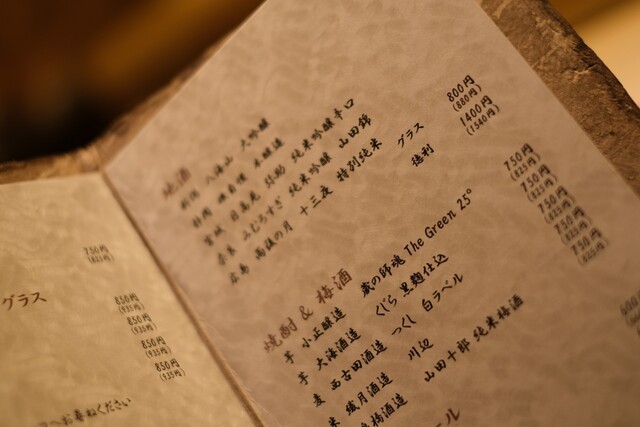 750円
(825円)
グラス
850円
(935円)
850円
(935円)
850円
(935円)
850円
(935円)
お尋ねください
地酒
八海山 大吟醸
本醸造
宮城 日高見 弥助 純米吟醸辛口
奈良 みむろすぎ 純米吟醸 山田錦
広島 雨後の月 十三夜 特別純米
グラス
800円
(880円)
徳利
1400円
(1540円)
焼酎 & 梅酒
芋 小正醸造 蔵の師魂 The Green 25°
750円
(825円)
芋 大海酒造 くじら 黒麹仕込
750円
(825円)
麦 西吉田酒造 つくし 白ラベル
750円
(825円)
米 繊月酒造 川辺
750円
(825円)
梅酒造 山田十郎 純米梅酒
750円
(825円)
ール